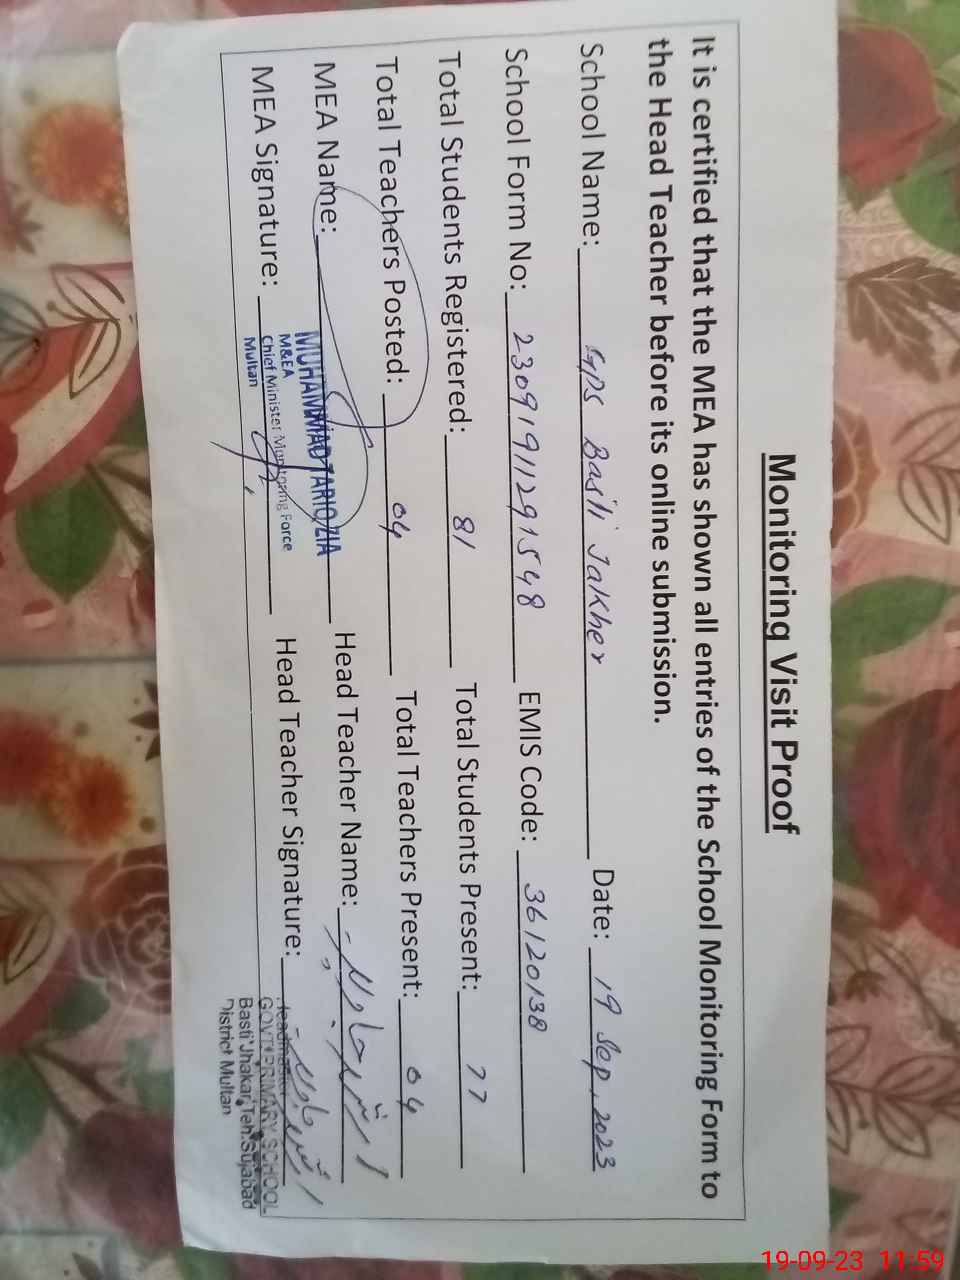 Monitoring Visit Proof
It is certified that the MEA has shown all entries of the School Monitoring Form to
the Head Teacher before its online submission.
School Name: GPS Basti Jakher Date: 19 Sep, 2023
School Form No: 23091911291548 EMIS Code: 36120138
Total Students Registered: 81 Total Students Present: 77
Total Teachers Posted: 04 Total Teachers Present: 04
MEA Name: MUHAMMAD TARIQ ZIA Head Teacher Name:
M&EA
Chief Minister Monitoring Force
Multan
MEA Signature: Head Teacher Signature:
Headmaster
GOVT: PRIMARY SCHOOL
Basti Jhakar, Teh: Sujabad
District Multan
19-09-23 11:59